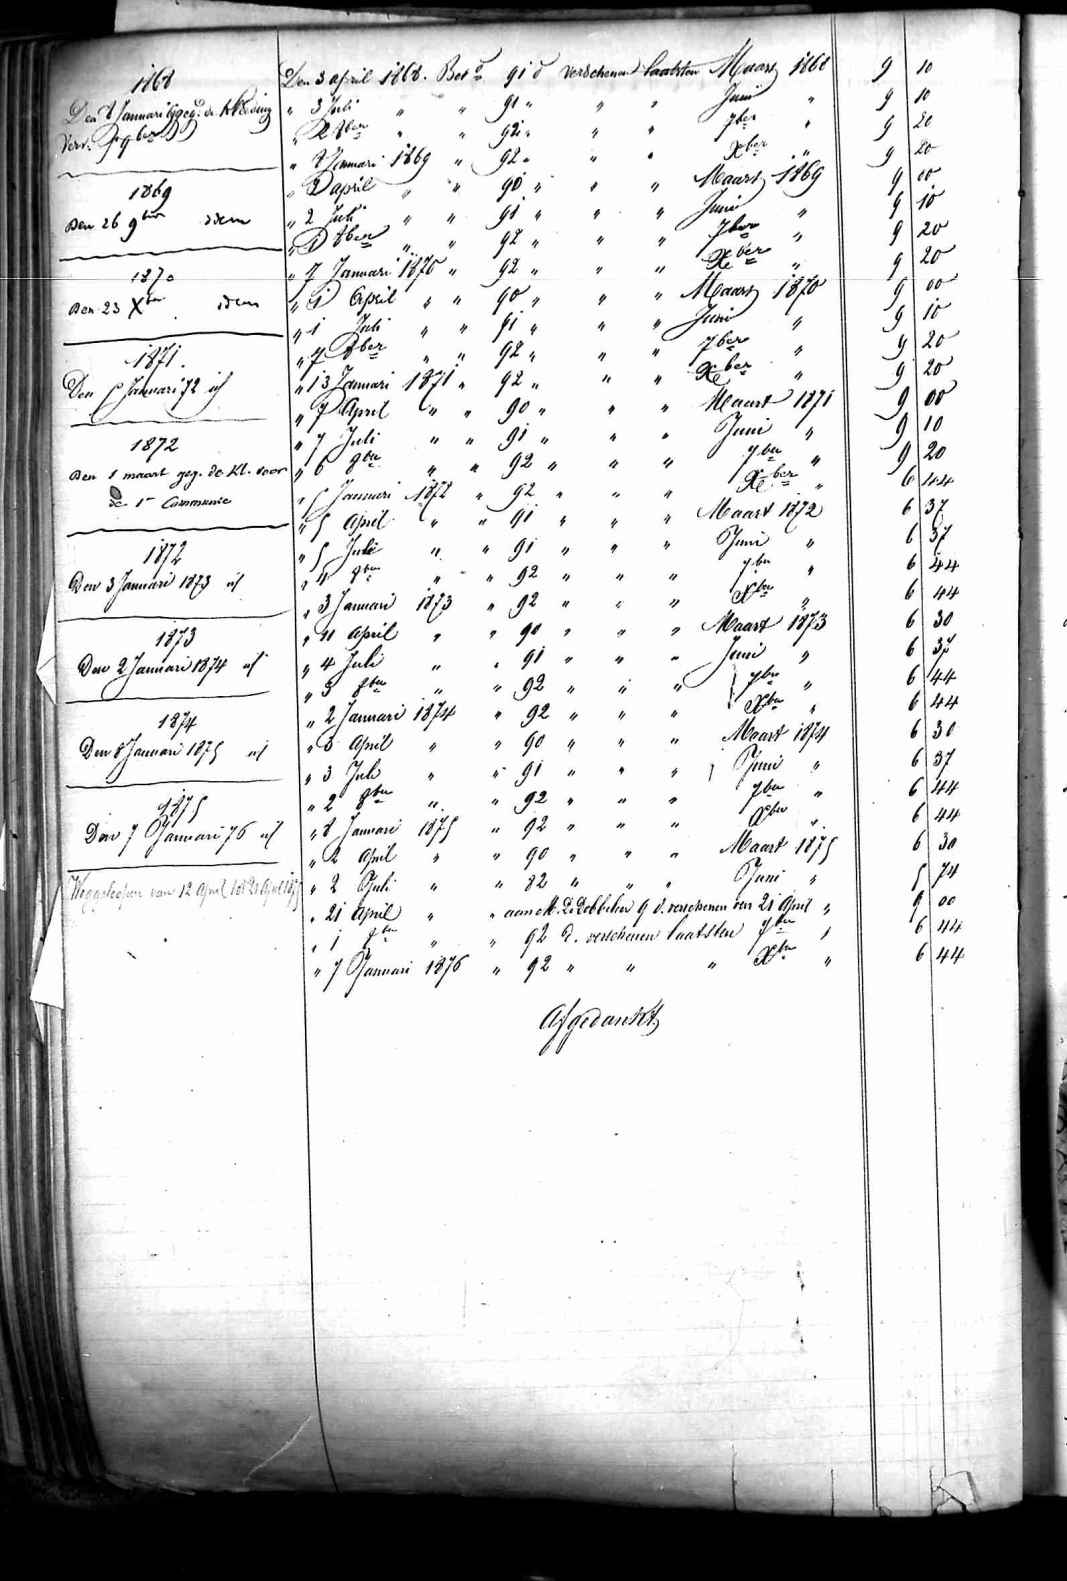 1868
Den 8 Januari 69 geg. de kleeding
Verv. 9ber
1869
Den 26 9ber idem
1870
Den 23 Xber idem
1871.
Den 5 Januari 72 id
1872
Den 1 maart geg. de kl. voor
de 1e Communie
1872
Den 3 Januari 1873 id
1873
Den 2 Januari 1874 id
1874
Den 8 Januari 1875 id
1875
Den 7 Januari 76 id
Weggeloopen van 12 April tot 21 April 1875
Den 3 april 1868. Bet. 91 d verschenen laatsten Maart 1868 9 10
" 3 Juli " " 91 " " " Junii " 9 10
" 2 8ber " " 92 " " " 7ber " 9 20
" 8 Januari 1869 " 92 " " " Xber " 9 20
" 2 april " " 90 " " " Maart 1869 9 00
" 2 Juli " " 91 " " " Junii " 9 10
" 1 8ber " " 92 " " " 7ber " 9 20
" 7 Januari 1870 " 92 " " " Xber " 9 20
" 1 April " " 90 " " " Maart 1870 9 00
" 1 Juli " " 91 " " " Juni " 9 10
" 7 8ber " " 92 " " " 7ber " 9 20
" 13 Januari 1871 " 92 " " " Xber " 9 20
" 7 April " " 90 " " " Maart 1871 9 00
" 7 Juli " " 91 " " " Juni " 9 10
" 6 8ber " " 92 " " " 7ber " 9 20
" 5 Januari 1872 " 92 " " " Xber " 6 44
" 5 April " " 91 " " " Maart 1872 6 37
" 5 Juli " " 91 " " " Juni " 6 37
" 4 8ber " " 92 " " " 7ber " 6 44
" 3 Januari 1873 " 92 " " " Xber " 6 44
" 4 April " " 90 " " " Maart 1873 6 30
" 4 Juli " " 91 " " " Juni " 6 37
" 3 8ber " " 92 " " " 7ber " 6 44
" 2 Januari 1874 " 92 " " " Xber " 6 44
" 3 April " " 90 " " " Maart 1874 6 30
" 3 Juli " " 91 " " " Juni " 6 37
" 2 8ber " " 92 " " " 7ber " 6 44
" 8 Januari 1875 " 92 " " " Xber " 6 44
" 2 April " " 90 " " " Maart 1875 6 30
" 2 Juli " " 82 " " " Juni " 5 74
" 21 April " " aan M. De Dobbeleer 9 d. verschenen van 21 April " 9 00
" 1 8ber " " 92 d. verschenen laatsten 7ber " 6 44
" 7 Januari 1876 " 92 " " " Xber " 6 44
Afgedankt